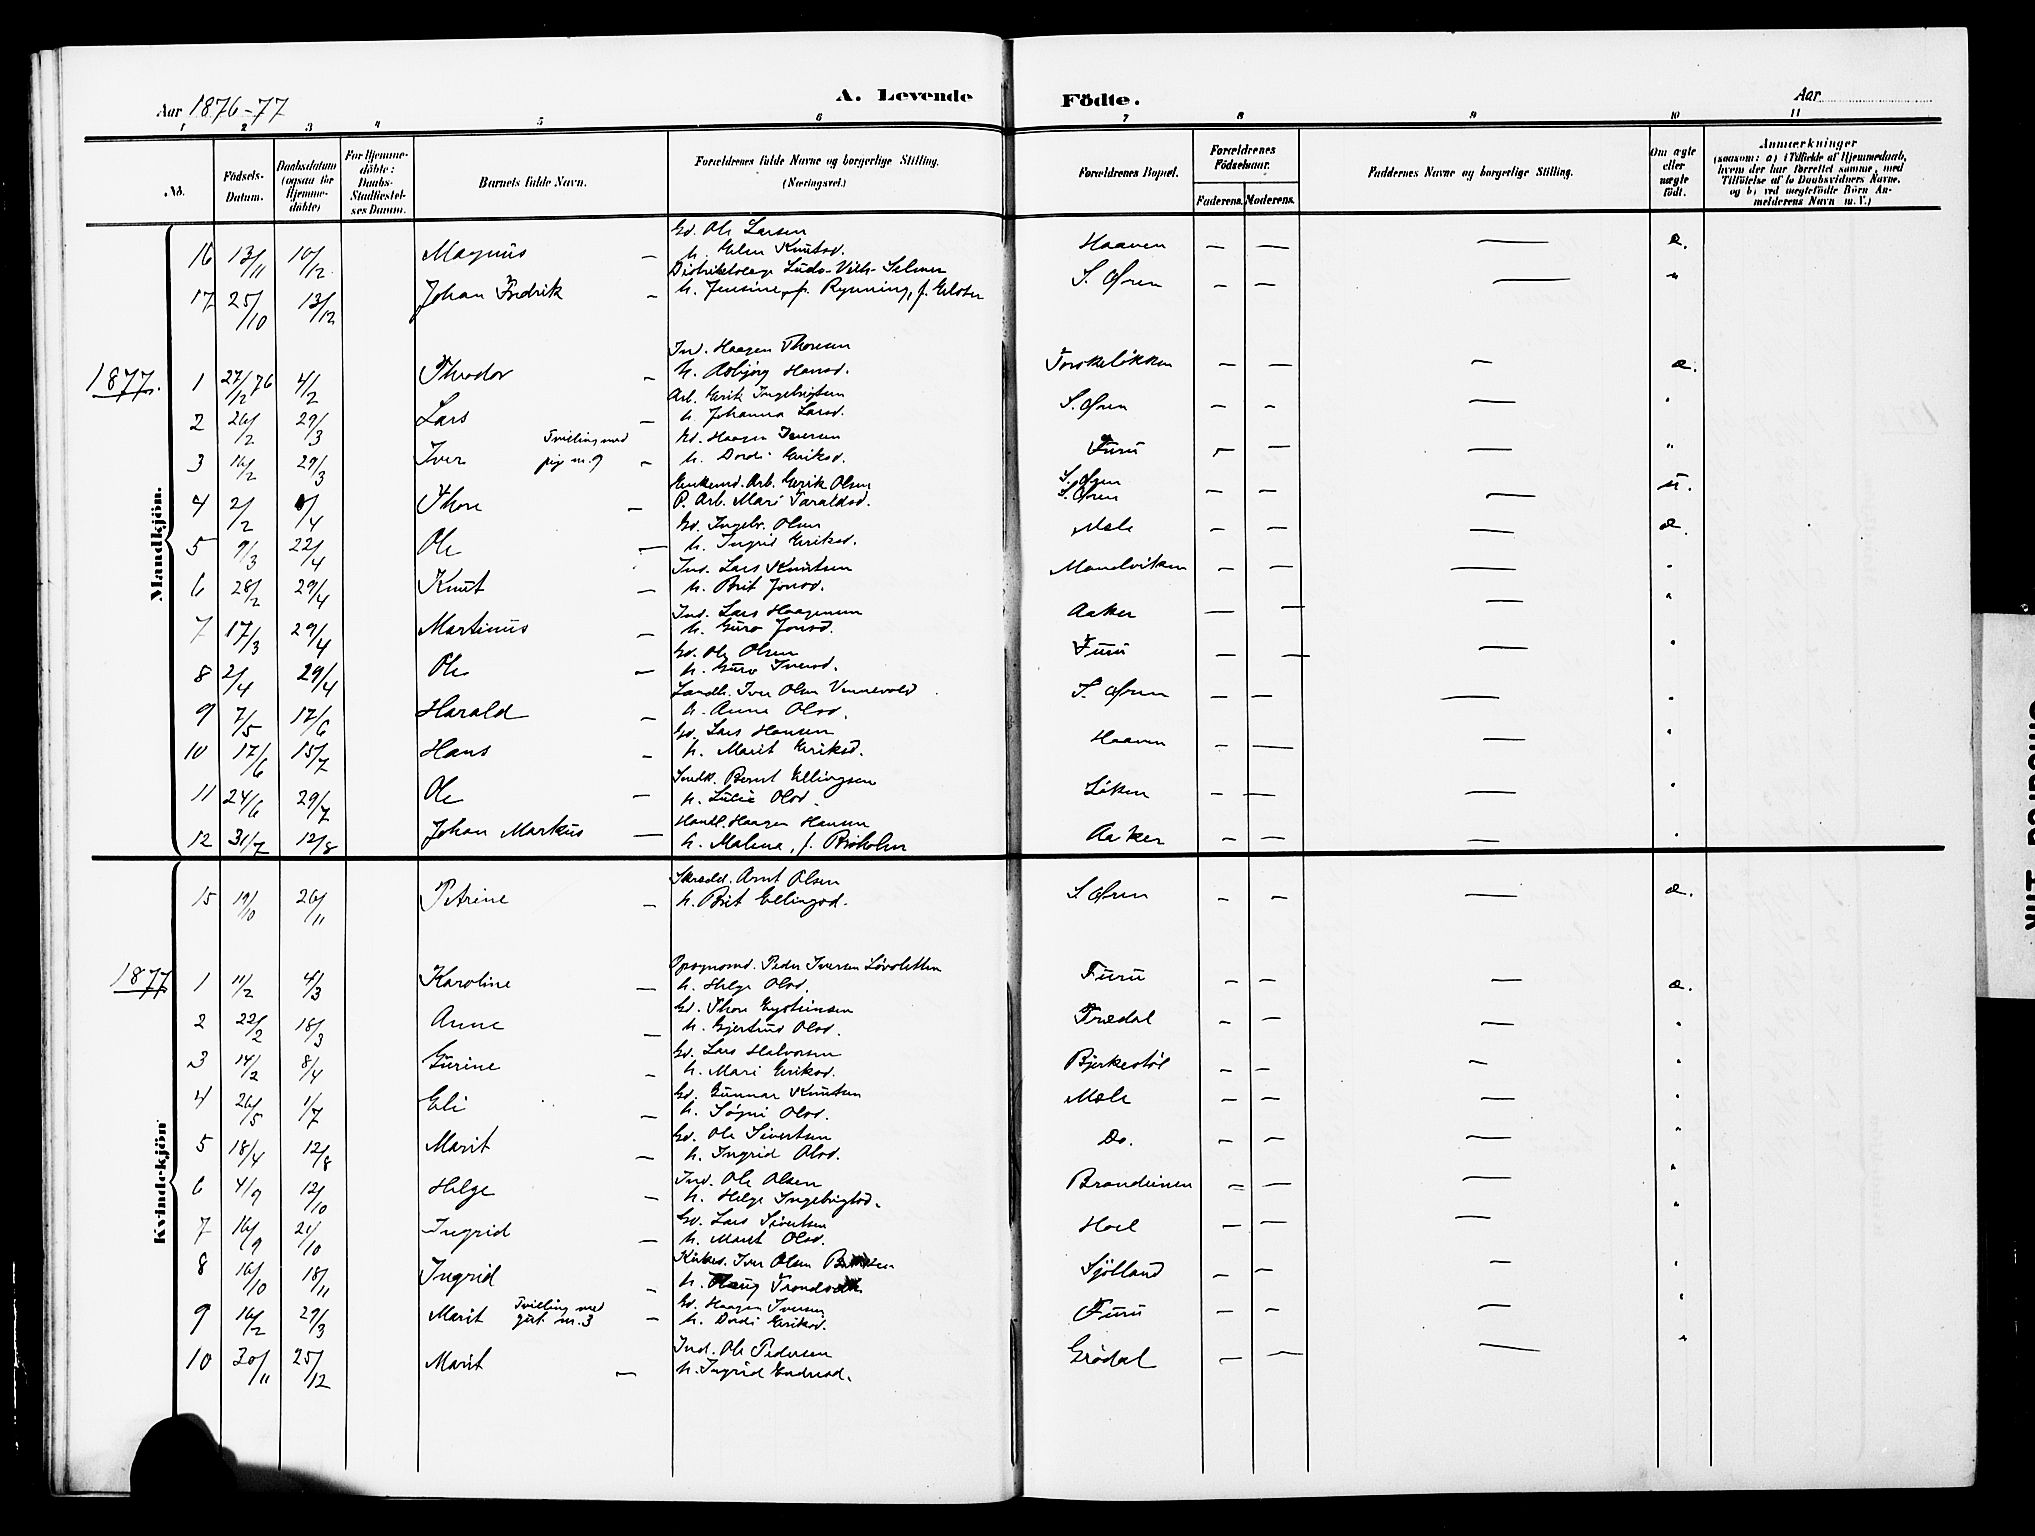 A. Levende Födte.
Aar 1876-77
Aar
1 2 3 4 5 6 7 8 9 10 11
No.
Födsels-Datum.
Daabsdatum (ogsaa for Hjemmedöbte)
For Hjemmedöbte: Daabs-Stadfæstelses Datum.
Barnets fulde Navn.
Forældrenes fulde Navne og borgerlige Stilling. (Næringsvei.)
Forældrenes Bopæl.
Forældrenes Födselsaar.
Faderens. Moderens.
Faddernes Navne og borgerlige Stilling.
Om ægte eller uægte födt.
Anmærkninger (saasom: a) i Tilfælde af Hjemmedaab, hvem der har forrettet samme, med Tilföielse af to Daabsvidners Navne, og b) ved uægtefödte Börn Anmelderens Navn m. V.)
Mandkjön.
16 13/11 10/12 Magnus — Gd. Ole Larsen
h. Gelen Knutsd. Haaven — — — æ.
17 25/10 13/12 Johan Fredrik — Distriktslæge Ludv. Vilh. Selmer
h. Jensine, f. Rynning, S. Øren — — — "
1877.
1 27/12 76 4/2 Theodor — Ind. Haagen Thoresen
h. Asbjørg Hansd. Torskeløkken — — — æ.
2 26/2 29/3 Lars — Arb. Erik Ingebrigtsen
h. Johanna Larsd. S. Øren — — — "
3 16/2 29/3 Iver Tvilling med pige nr. 9 — Gd. Haagen Iversen
h. Dordi Eriksd. Furu — — — "
4 2/2 /4 Thore — Enkemd. Arb. Erik Olsen S. Øren
P. Arb. Mari Taraldsd. S. Øren — — — u.
5 9/3 22/4 Ole — Gd. Ingebr. Olsen
h. Ingrid Eriksd. Mæle — — — æ.
6 28/2 29/4 Knut — Ind. Lars Knutsen
h. Brit Jonsd. Mandviken — — — "
7 17/3 29/4 Martinus — Ind. Lars Haagensen
h. Guro Jonsd. Aaker — — — "
8 2/4 29/4 Ole — Gd. Ole Olsen
h. Guro Iversd. Furu — — — "
9 7/5 17/6 Harald — Landh. Iver Olsen Vennevold
h. Anne Olsd. S. Øren — — — "
10 17/6 15/7 Hans — Gd. Lars Hansen
h. Marit Eriksd. Haaven — — — "
11 24/6 29/7 Ole — Snedk. Bernt Ellingsen
h. Lulie Olsd. Løken — — — "
12 31/7 12/8 Johan Markus — Handl. Haagen Hansen
h. Malena, f. Aaker — — — "
Kvindekjön
15 19/10 26/11 Petrine — Skrædd. Arnt Olsen
h. Brit Ellingsd. S. Øren — — — æ.
1877
1 11/2 4/3 Karoline — Opsynsmd. Peder Iversen Løvsletten
h. Helge Olsd. Furu — — — æ.
2 22/2 18/3 Anne — Gd. Thore Gustensen
h. Gjertrud Olsd. Trædal — — — "
3 14/2 8/4 Gurine — Gd. Lars Halvorsen
h. Mari Eriksd. Bjerkestøl — — — "
4 26/5 1/7 Eli — Gd. Gunnar Knutsen
h. Søgni Olsd. Mæle — — — "
5 18/4 12/8 Marit — Gd. Ole Sivertsen
h. Ingrid Olsd. Do. — — — "
6 4/9 12/10 Helge — Ind. Ole Olsen
h. Helge Ingebrigtsd. — — — "
7 16/9 21/10 Ingrid — Gd. Lars Sivertsen
h. Marit Olsd. Hoel — — — "
8 16/10 18/11 Ingrid — Iver Olsen
h. Sjølland — — — "
9 16/2 29/3 Marit Tvilling med gut. nr. 3 — Gd. Haagen Iversen
h. Dordi Eriksd. Furu — — — "
10 30/11 25/12 Marit — Ind. Ole Pedersen
h. Ingrid Endresd. Grødal — — — "